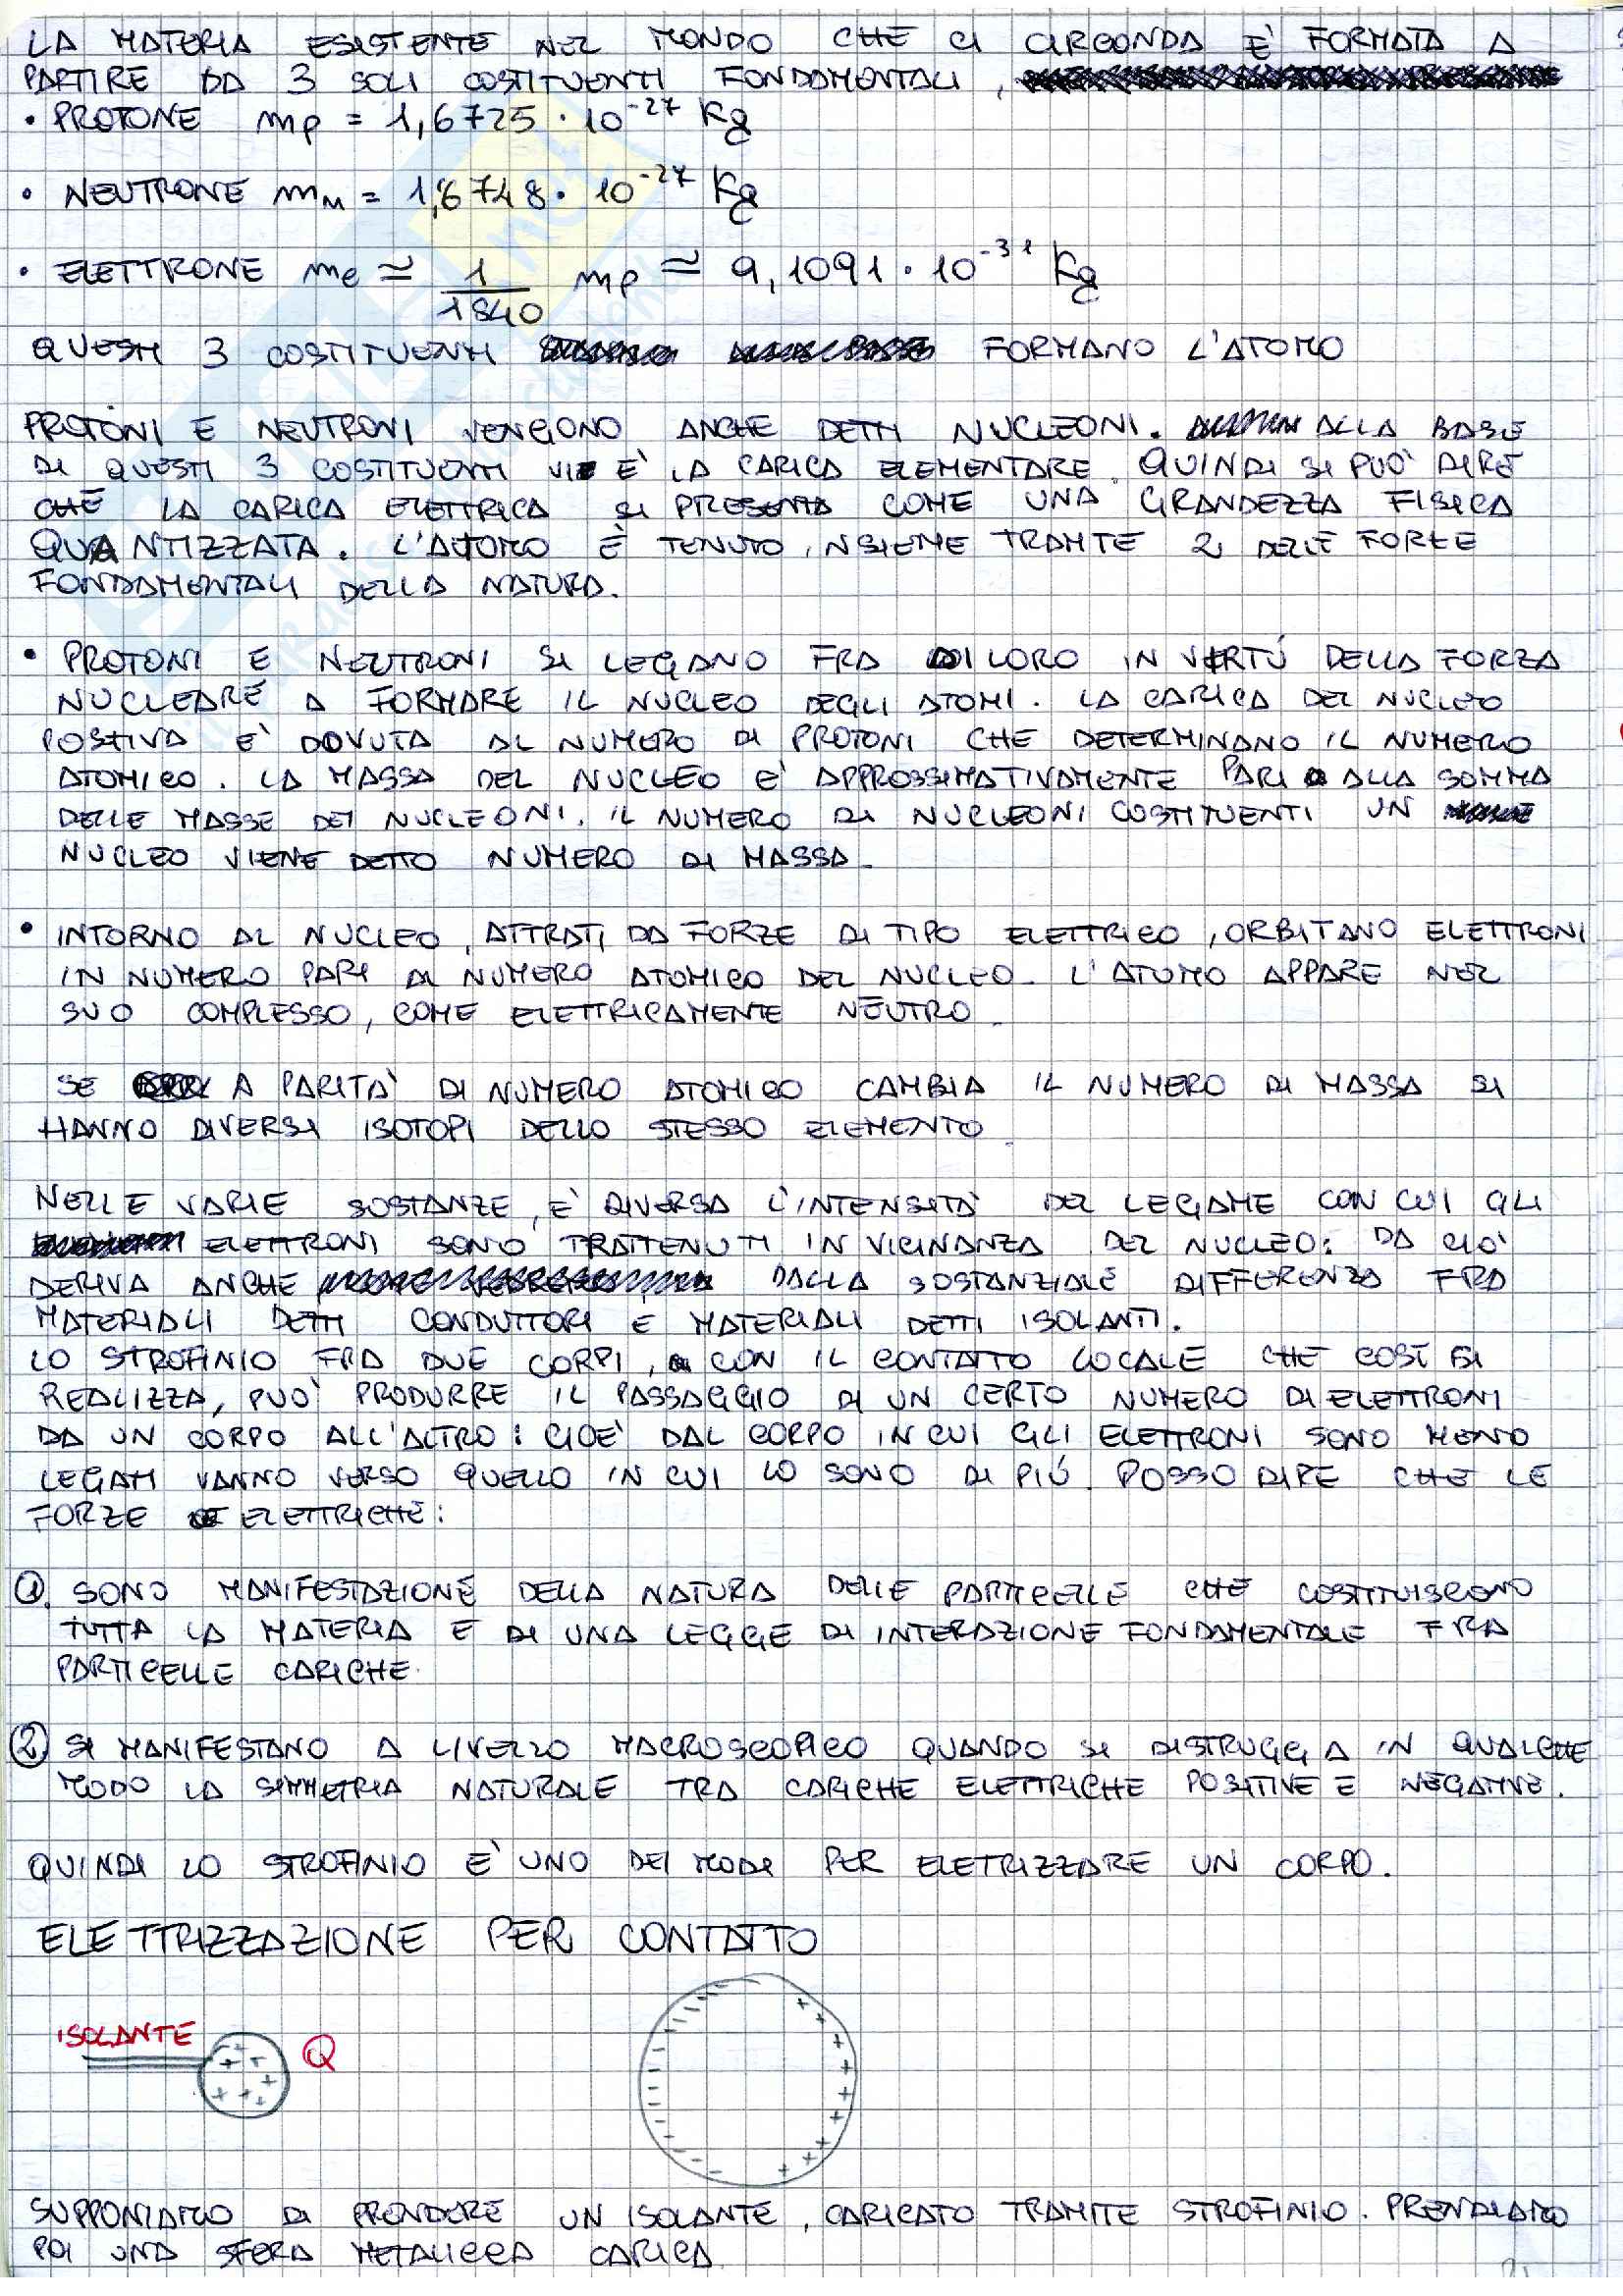 LA MATERIA ESISTENTE NEL MONDO CHE CI CIRCONDA E' FORMATA A
PARTIRE DA 3 SOLI COSTITUENTI FONDAMENTALI,
• PROTONE mp = 1,6725 · 10^-27 Kg
• NEUTRONE mN = 1,6748 · 10^-27 Kg
• ELETTRONE me ≃ 1/1840 mp ≃ 9,1091 · 10^-31 Kg
QUESTI 3 COSTITUENTI FORMANO L'ATOMO
PROTONI E NEUTRONI VENGONO ANCHE DETTI NUCLEONI. ALLA BASE
DI QUESTI 3 COSTITUENTI VI E' LA CARICA ELEMENTARE. QUINDI SI PUO' DIRE
CHE LA CARICA ELETTRICA SI PRESENTA COME UNA GRANDEZZA FISICA
QUANTIZZATA. L'ATOMO È TENUTO INSIEME TRAMITE 2 DELLE FORZE
FONDAMENTALI DELLA NATURA.
• PROTONI E NEUTRONI SI LEGANO FRA DI LORO IN VIRTÚ DELLA FORZA
NUCLEARE A FORMARE IL NUCLEO DEGLI ATOMI. LA CARICA DEL NUCLEO
POSITIVA E' DOVUTA AL NUMERO DI PROTONI CHE DETERMINANO IL NUMERO
ATOMICO. LA MASSA DEL NUCLEO E' APPROSSIMATIVAMENTE PARI ALLA SOMMA
DELLE MASSE DEI NUCLEONI. IL NUMERO DI NUCLEONI COSTITUENTI UN
NUCLEO VIENE DETTO NUMERO DI MASSA.
• INTORNO AL NUCLEO, ATTRATI DA FORZE DI TIPO ELETTRICO, ORBITANO ELETTRONI
IN NUMERO PARI AL NUMERO ATOMICO DEL NUCLEO. L'ATOMO APPARE NEL
SUO COMPLESSO, COME ELETTRICAMENTE NEUTRO.
SE A PARITA' DI NUMERO ATOMICO CAMBIA IL NUMERO DI MASSA SI
HANNO DIVERSI ISOTOPI DELLO STESSO ELEMENTO.
NELLE VARIE SOSTANZE, E' DIVERSA L'INTENSITA' DEL LEGAME CON CUI GLI
ELETTRONI SONO TRATTENUTI IN VICINANZA DEL NUCLEO: DA CIO'
DERIVA ANCHE DALLA SOSTANZIALE DIFFERENZA FRA
MATERIALI DETTI CONDUTTORI E MATERIALI DETTI ISOLANTI.
LO STROFINIO FRA DUE CORPI, CON IL CONTATTO LOCALE CHE COSÌ SI
REALIZZA, PUO' PRODURRE IL PASSAGGIO DI UN CERTO NUMERO DI ELETTRONI
DA UN CORPO ALL'ALTRO: CIOE' DAL CORPO IN CUI GLI ELETTRONI SONO MENO
LEGATI VANNO VERSO QUELLO IN CUI LO SONO DI PIÚ. POSSO DIRE CHE LE
FORZE ELETTRICHE:
① SONO MANIFESTAZIONE DELLA NATURA DELLE PARTICELLE CHE COSTITUISCONO
TUTTA LA MATERIA E DI UNA LEGGE DI INTERAZIONE FONDAMENTALE FRA
PARTICELLE CARICHE.
② SI MANIFESTANO A LIVELLO MACROSCOPICO QUANDO SI DISTRUGGA IN QUALCHE
MODO LA SIMMETRIA NATURALE TRA CARICHE ELETTRICHE POSITIVE E NEGATIVE.
QUINDI LO STROFINIO E' UNO DEI MODI PER ELETRIZZARE UN CORPO.
ELETTRIZZAZIONE PER CONTATTO
ISOLANTE Q
SUPPONIAMO DI PRENDERE UN ISOLANTE, CARICATO TRAMITE STROFINIO. PRENDIAMO
POI UNA SFERA METALLICA CARICA.